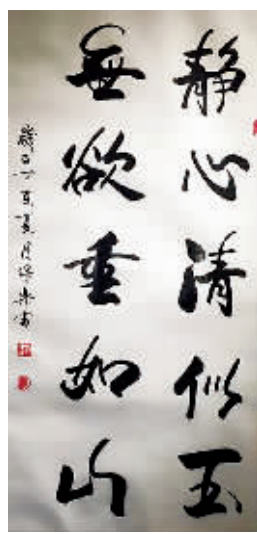 静心清似玉
無欲重如山